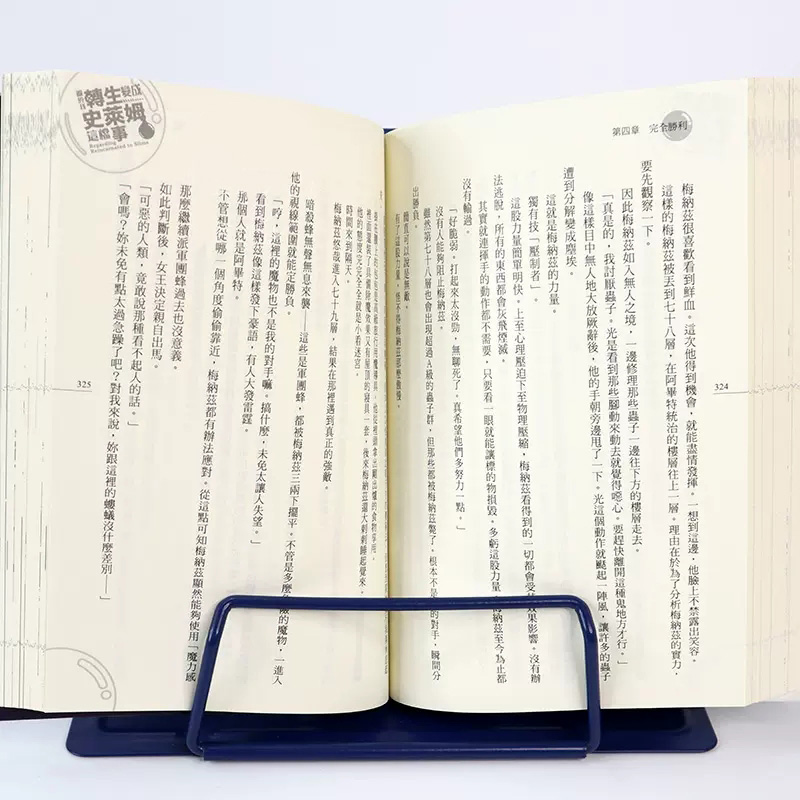 第四章　完全勝利
梅納茲很喜歡看到鮮血。這次他得到機會，就能盡情發揮。一想到這邊，他臉上不禁露出笑容。
這樣的梅納茲被丟到七十八層，在阿畢特統治的樓層往上一層。理由在於為了分析梅納茲的實力，
要先觀察一下。
因此梅納茲如入無人之境，一邊修理那些蟲子一邊往下方的樓層走去。
「真是的，我討厭蟲子。光是看到那些腳動來動去就覺得噁心。要趕快離開這種鬼地方才行。」
像這樣目中無人地大放厥辭後，他的手朝旁邊甩了一下。光這個動作就颳起一陣風，讓許多的蟲子
遭到分解變成塵埃。
這就是梅納茲的力量。
獨有技「壓制者」。
這股力量簡單明快。上至心理壓迫下至物理壓縮，梅納茲看得到的一切都會受
效果影響。沒有辦
法逃脫，所有的東西都會灰飛煙滅。
其實就連揮手的動作都不需要，只要看一眼就能讓標的物損毀。多虧這股力量，
梅納茲至今為止都
沒有輸過。
「好脆弱。打起來太沒勁，無聊死了。真希望他們多努力一點。」
沒有人能夠阻止梅納茲。
雖然第七十八層也會出現超過A級的蟲子群，但那些都被梅納茲襲了。根本不是
的對手，瞬間分
出勝負。
簡直可以說是無敵。
有了這股力量，怪不得梅納茲那麼傲慢。
324
關於我
轉生變成
史萊姆
這檔事
Regarding
Reincarnated to Slime
時間來到隔天。
梅納茲悠哉進入七十九層，結果在那裡遇到真正的強敵。
暗殺蜂無聲無息來襲——這些是軍團蜂，都被梅納茲三兩下擺平。不管是多麼危險的魔物，一進入
他的視線範圍就能定勝負。
「哼，這裡的魔物也不是我的對手嘛。搞什麼，未免太讓人失望。」
看到梅納茲像這樣發下豪語，有人大發雷霆。
那個人就是阿畢特。
不管想從哪一個角度偷偷靠近，梅納茲都有辦法應對。從這點可知梅納茲顯然能夠使用「魔力感
那麼繼續派軍團蜂過去也沒意義。
如此判斷後，女王決定親自出馬。
「可惡的人類，竟敢說那種看不起人的話。」
「會嗎？妳未免有點太過急躁了吧？對我來說，妳跟這裡的螻蟻沒什麼差別——」
325